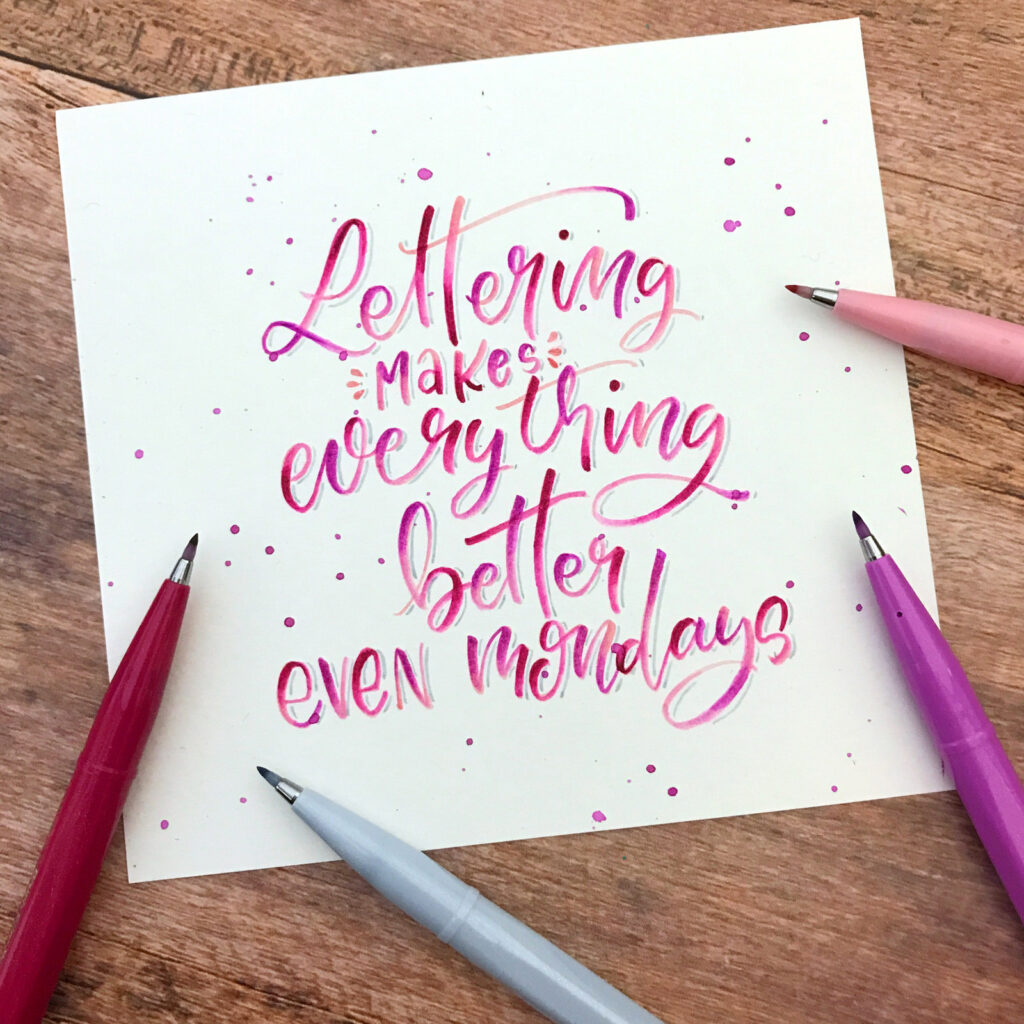 Lettering
makes
everything
better
even mondays